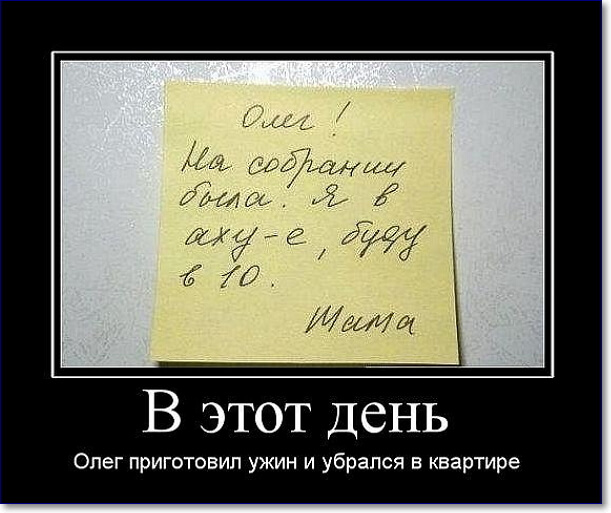 Олег!
На собрании
была. Я в
аху-е, буду
в 10.
Мама
В этот день
Олег приготовил ужин и убрался в квартире